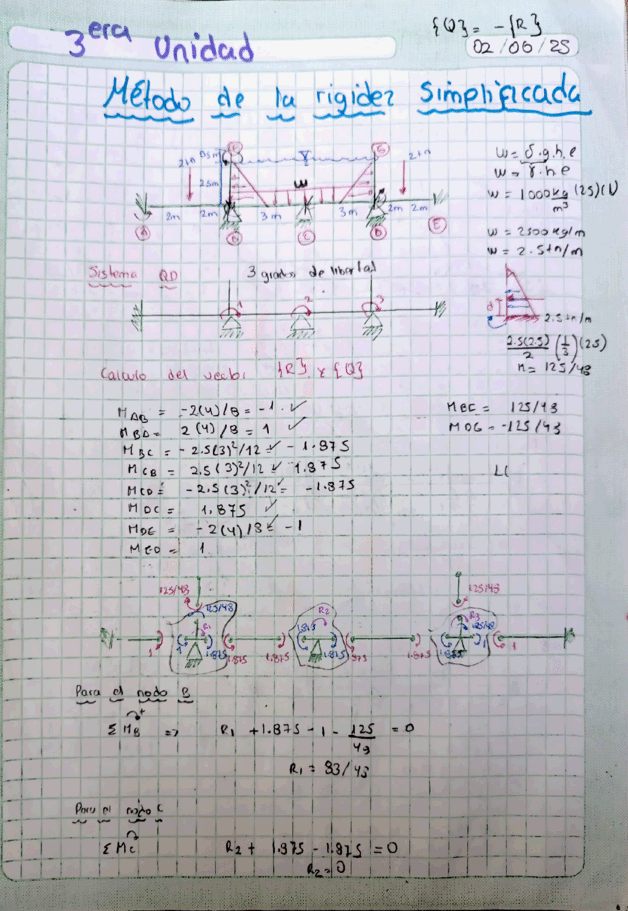 {Q} = -{R}
3era Unidad
02/06/25
Método de la rigidez simplificada
2tn 0.5m 2tn
2.5m w
2m 2m 3m 3m 2m 2m
A B C D E
w = δ.g.h.e
w = γ.h.e
w = 1000 kg/m³ (2.5)(1)
w = 2500 kg/m
w = 2.5tn/m
Sistema QD
3 grados de libertad
1 2 3
d
2.5tn/m
2.5(2.5)/2 (1/3)(2.5)
M = 125/48
Calculo del vector {R} y {Q}
MAB = -2(4)/8 = -1 ✓
MBA = 2(4)/8 = 1 ✓
MBC = -2.5(3)²/12 = -1.875
MCB = 2.5(3)²/12 = 1.875
MCD = -2.5(3)²/12 = -1.875
MDC = 1.875 ✓
MDE = -2(4)/8 = -1
MED = 1
MBF = 125/48
MDG = -125/48
125/48 125/48
125/48 R1 R2 R3 125/48
1 1 1.875 1.875 1.875 1.875 1.875 1.875 1.875 1.875 1 1
Para el nodo B
ΣMB ⇒ R1 + 1.875 - 1 - 125/48 = 0
R1 = 83/48
Para el nodo C
ΣMc R2 + 1.875 - 1.875 = 0
R2 = 0